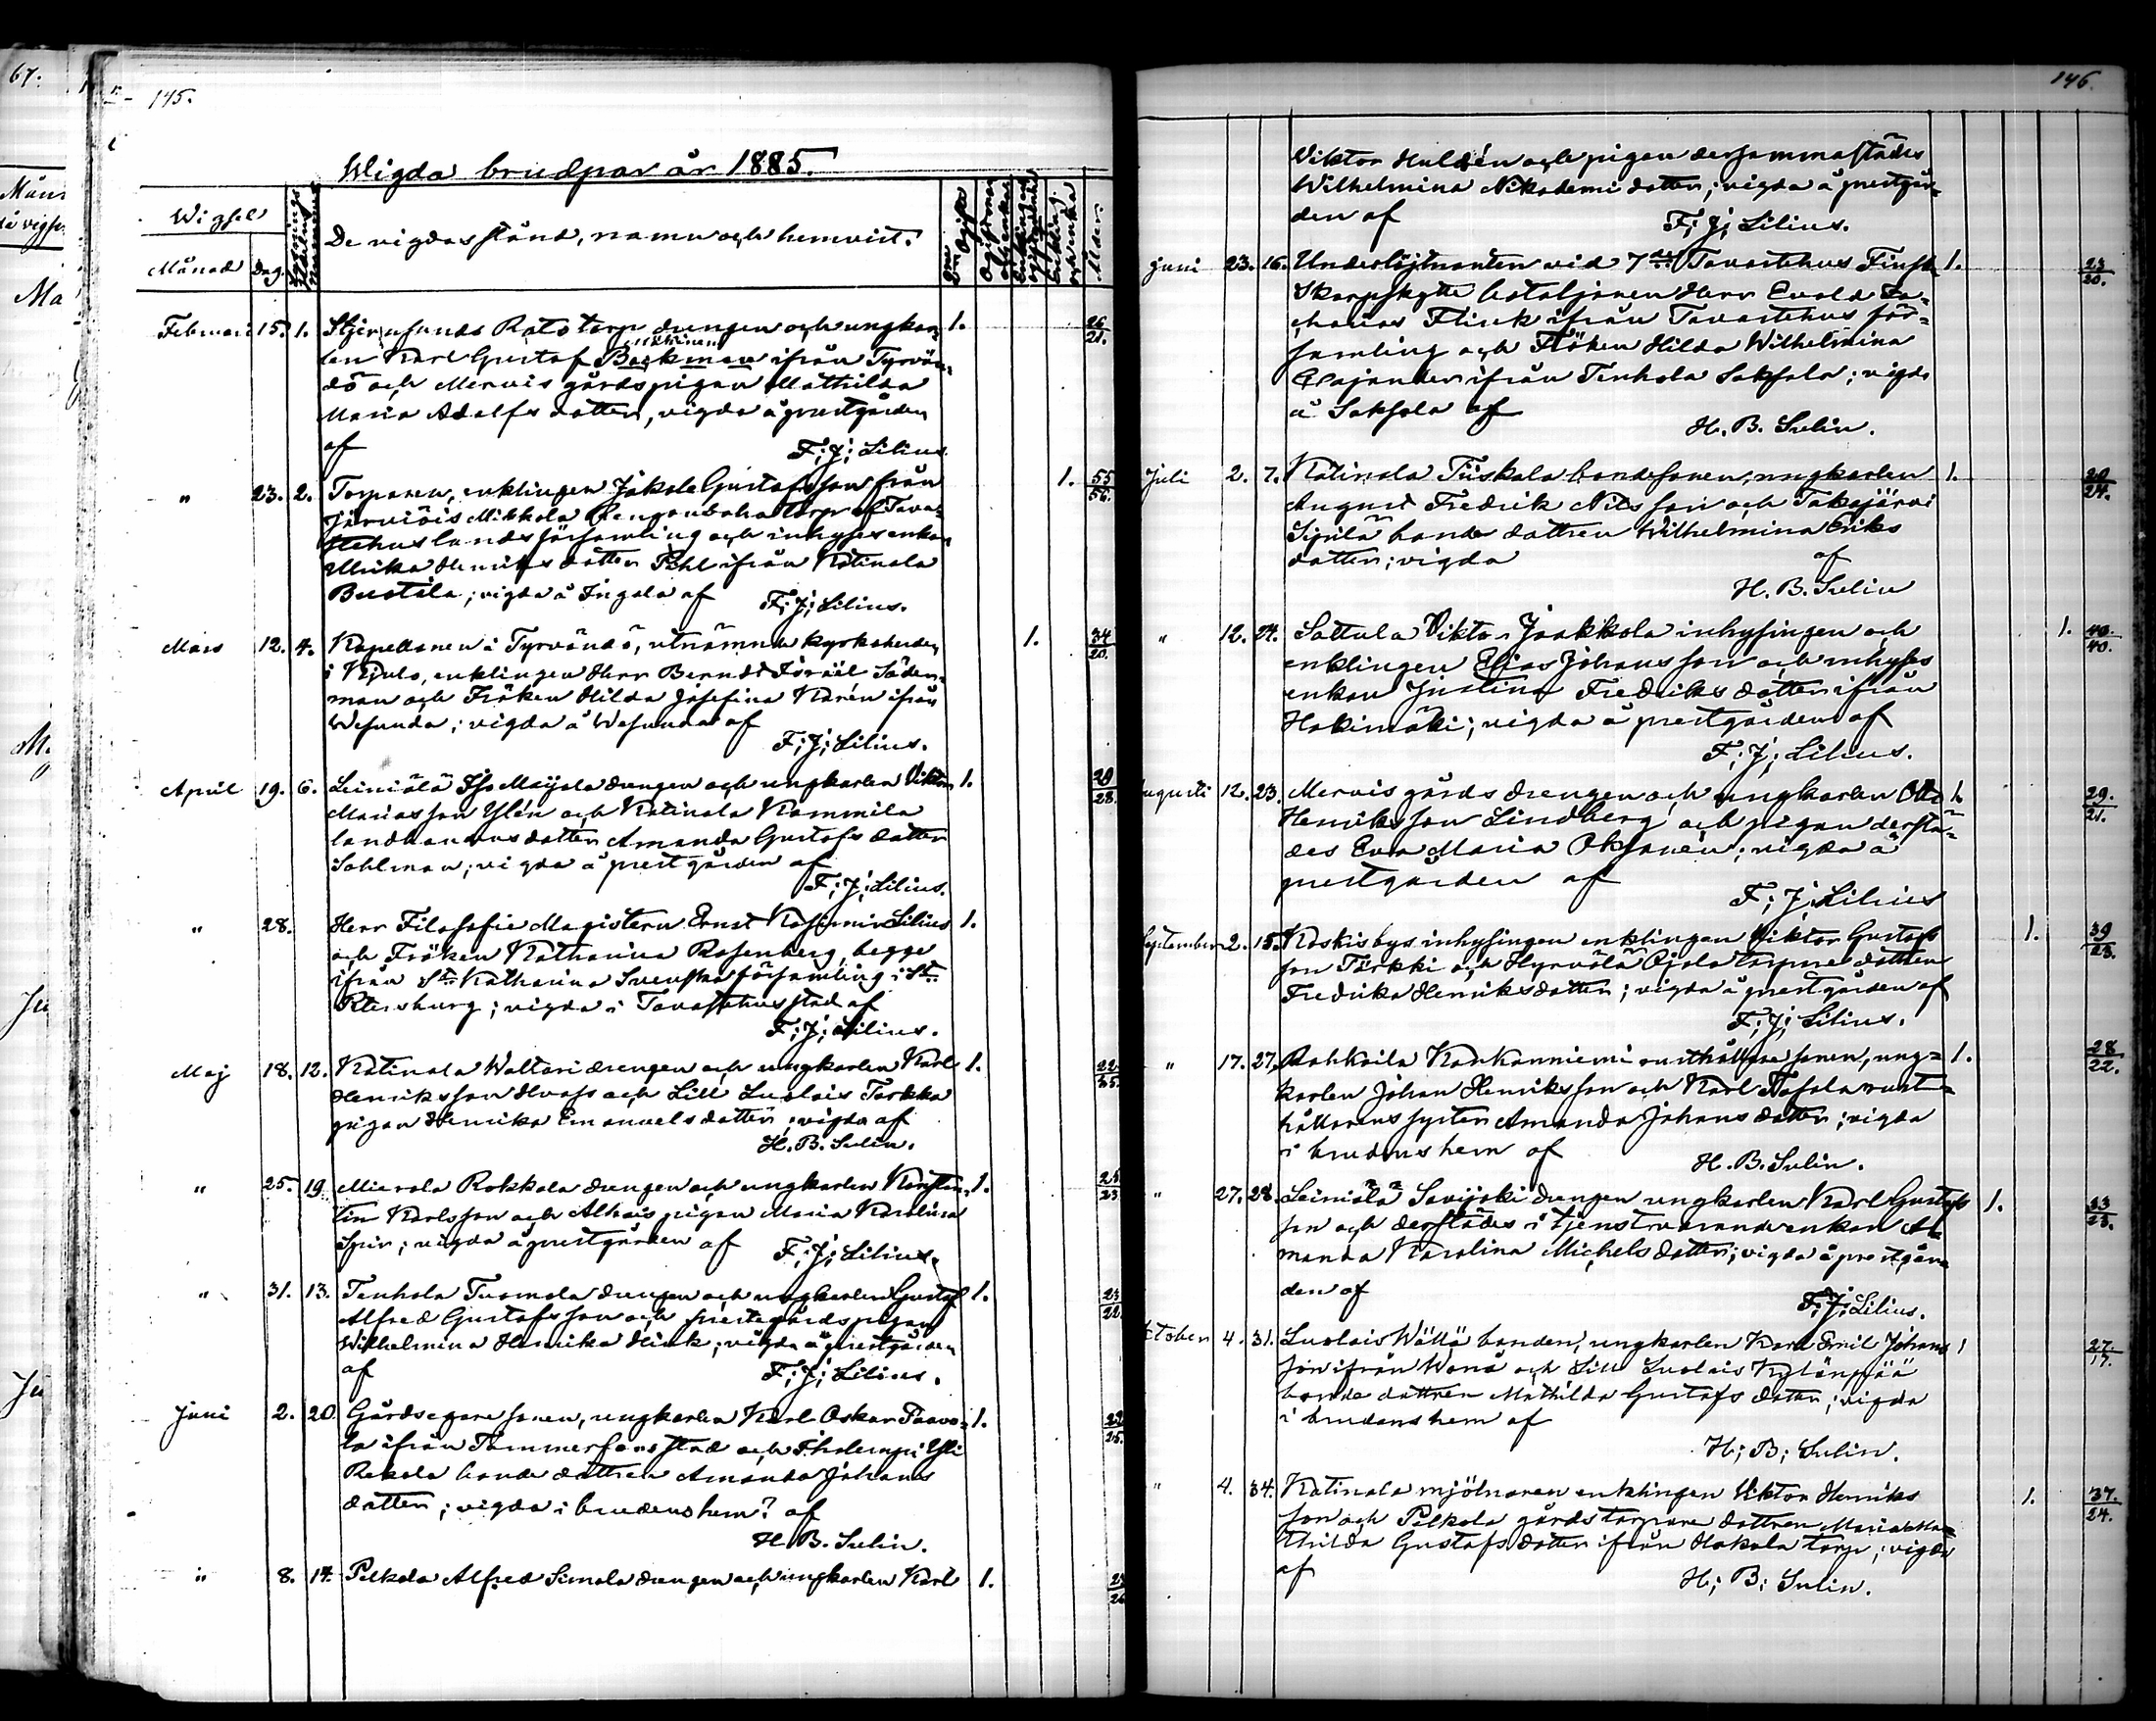 67.
145.
Wigda brudpar år 1885.
Wigsel
Månad Dag.
De vigdas stånd, namn och hemvist.
Ålder.
Februari 15. 1. Stjernsunds Rato torp drengen och ungkar- 1. 26/21.
len Karl Gustaf Backman ifrån Tyrvän-
dö och Mervis gårds pigan Mathilda
Maria Adolfs dotter, vigda å prestgården
af F; J; Lilius.
" 23. 2. Torparen, enklingen Jakob Gustafsson från 1. 55/56.
Järviöis Mikkola torp af Tava-
stehus landsförsamling och inhyses enkan
Ulrika Henriks dotter Pihl ifrån Kätinala
Bustila; vigda å Ingala af F; J; Lilius.
Mars 12. 4. Kapellanen i Tyrvändö, utnämnde kyrkoherden 1. 34/20.
i Kjulo, enklingen Herr Berndt Israël Söder-
man och Fröken Hilda Josefina Karén ifrån
Wesunda; vigda å Wesunda af
F; J; Lilius.
April 19. 6. Leiniälä Iso Maijala drengen och ungkarlen Viktor 1. 29/28.
Mariasson Ylén och Kätinala Kammila
landbondens dotter Amanda Gustafs dotter
Sahlman; vigda å prestgården af
F; J; Lilius.
" 28. Herr Filosofie Magistern Ernst Kasimir Lilius 1.
och Fröken Katharina Rosenberg, begge
ifrån S:ta Katharina Svenska församling i S:t
Petersburg; vigda i Tavastehus stad af
F; J; Lilius.
Maj 18. 12. Kätinala Wallari drengen och ungkarlen Karl 1. 22/35.
Henriksson Hvass och Lill Luolais Torkko
pigan Henrika Emanuels dotter; vigda af
H. B. Sulin.
" 25. 19. Mierola Rokkola drengen och ungkarlen Konstan- 1. 25/23.
tin Karlsson och Alhais pigan Maria Karolina
Spir; vigda å prestgården af F; J; Lilius.
" 31. 13. Tenhola Tuomola drengen och ungkarlen Gustaf 1. 23/22.
Alfred Gustafsson och prestegårds pigan
Wilhelmina Henrika Hink; vigda å prestgården
af F; J; Lilius.
Juni 2. 20. Gårdsegare sonen, ungkarlen Karl Oskar Paavo- 1.
la ifrån Tammerfors stad och Iholempi Yli
Rekola bonde dottren Amanda Johans
dotter; vigda i brudens hem? af
H. B. Sulin.
" 8. 14. Pelkola Alfred Simola drengen och ungkarlen Karl 1.
146.
Viktor Huldén och pigan dersammastädes
Wilhelmina Nikodemi dotter; vigda å prestgår-
den af F; J; Lilius.
Juni 23. 16. Underlöjtnanten vid 7de Tavastehus Finska 1. 23/20.
Skarpskytte bataljonen Herr Evald Za-
charias Flink ifrån Tavastehus för-
samling och Fröken Hilda Wilhelmina
Cajander ifrån Tenhola Saksala; vigda
å Saksala af
H. B. Sulin.
Juli 2. 7. Kätinala Tiiskala bondesonen, ungkarlen 1. 20/24.
August Fredrik Nilsson och Takajärvi
Sipilä bonde dottren Wilhelmina Eriks
dotter; vigda af
H. B. Sulin
" 12. 24. Sattula Viktor Jaakkola inhysingen och 1. 40/40.
enklingen Esias Johansson och inhyses
enkan Justina Fredriks dotter ifrån
Hakimäki; vigda å prestgården af
F; J; Lilius.
Augusti 12. 23. Mervis gårds drengen och ungkarlen Otto 1. 29/21.
Henriksson Lindberg och pigan derstä-
des Eva Maria Oksanén; vigda å
prestgården af
F; J; Lilius
September 2. 15. Koskis bys inhysingen enklingen Viktor Gustafs 1. 39/23.
son Törkki och Hyrvälä Ojala torpare dottren
Fredrika Henriksdotter; vigda å prestgården af
F; J; Lilius.
" 17. 27. Rahkoila Kankanniemi rusthållare sonen, ung- 1. 28/22.
karlen Johan Henriksson och Karl Alasala rust-
hållarens syster Amanda Johans dotter; vigda
i brudens hem af H. B. Sulin.
" 27. 28. Leiniälä Savijoki drengen ungkarlen Karl Gustafs 1. 33/23.
son och derstädes i tjenst varande enkan A-
manda Karolina Michels dotter; vigda å prestgår-
den af
F; J; Lilius.
October 4. 31. Luolais Wällä bonden, ungkarlen Karl Emil Johans 1 27/17.
son ifrån Wanå och Lill Luolais Kylänpää
bonde dottren Mathilda Gustafs dotter; vigda
i brudens hem af
H; B; Sulin.
" 4. 34. Kätinala mjölnaren enklingen Viktor Henriks 1. 37/24.
son och Pelkola gårds torpare dottren Maria Ma-
thilda Gustafs dotter ifrån Hakala torp; vigda
af H; B; Sulin.